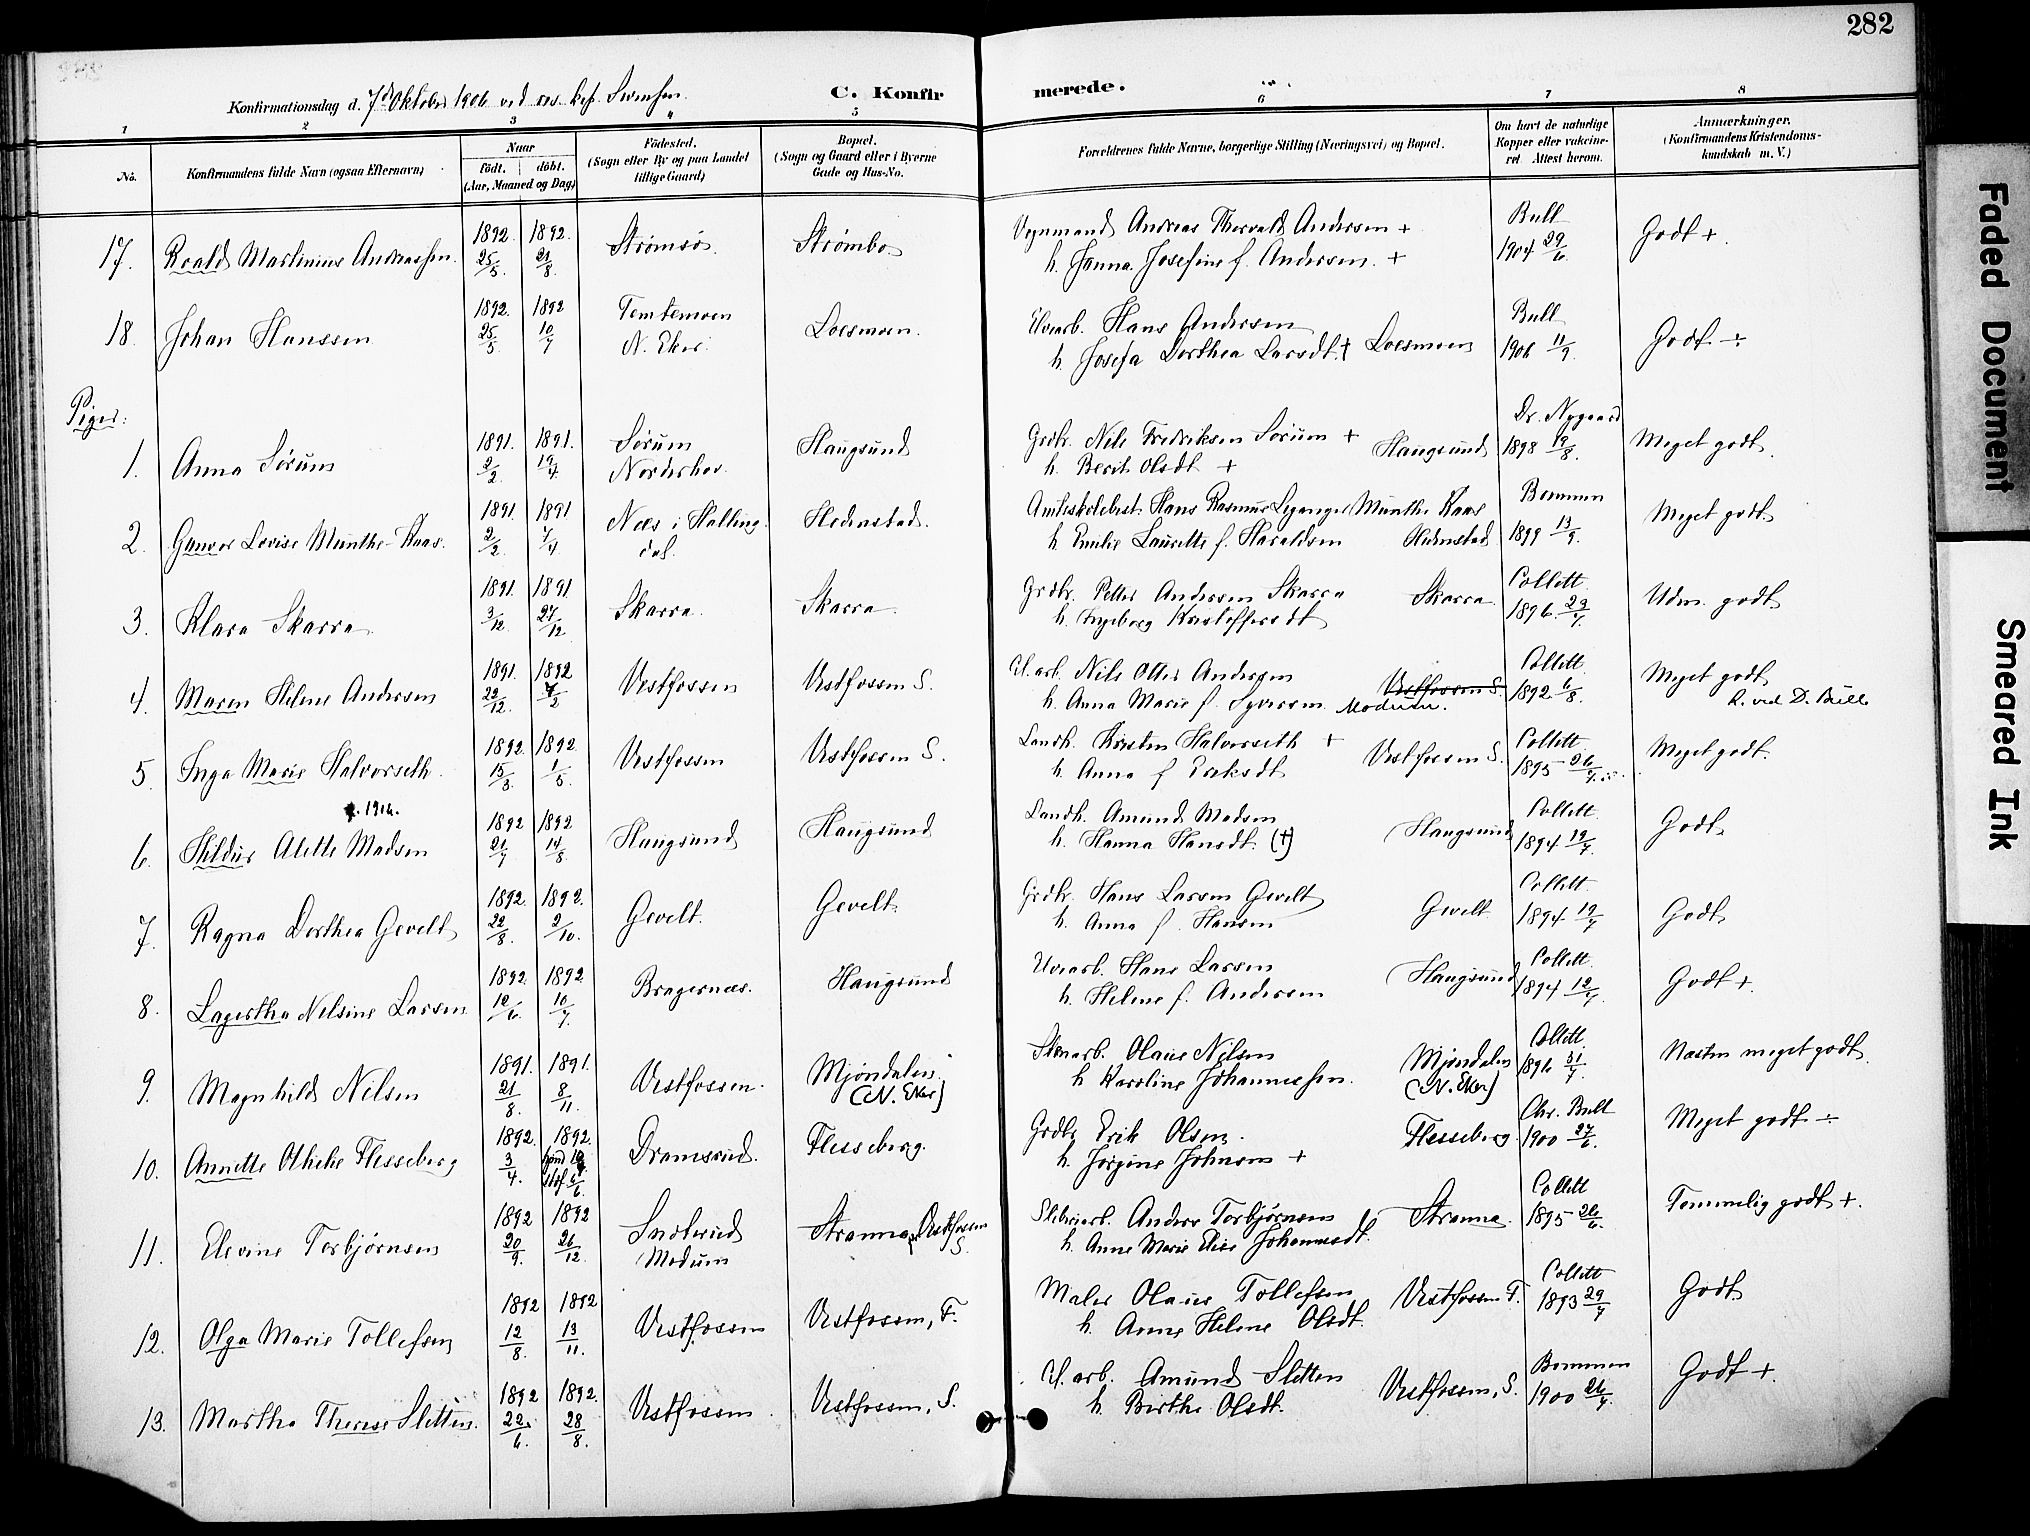 282
Konfirmationsdag d. 7de Oktober 1906 ved res. kap. Svensen.
C. Konfirmerede.
1 2 3 4 5 6 7 8
No.
Konfirmandens fulde Navn (ogsaa Efternavn)
Naar
födt. döbt.
(Aar, Maaned og Dag)
Födested.
(Sogn eller By og paa Landet
tillige Gaard)
Bopæl.
(Sogn og Gaard eller i Byerne
Gade og Hus-No.
Forældrenes fulde Navne, borgerlige Stilling (Næringsvei) og Bopæl.
Om havt de naturlige
Kopper eller vakcine-
ret. Attest herom.
Anmærkninger.
(Konfirmandens Kristendoms-
kundskab m. V.)
17. Roald Martinius Andreassen. 1892. 25/5. 1892. 21/8. Strømsø. Strømbo
Vognmand Andreas Thorvald Andersen +
h. Janna Josefine f. Andersen. +
Bull 1904 29/6. Godt +.
18. Johan Hanssen 1892. 25/5. 1892 10/7 Temtemoen N. Eker. Loesmoen.
Elvearb. Hans Andersen
h. Josefa Dorthea Larsdt. † Loesmoen
Bull 1906 11/9. Godt ÷
Piger:
1. Anna Sörum 1891. 2/2. 1891. 19/4. Sörum Norderhov. Haugsund
Grdbr. Nils Fredriksen Sorum +
h. Berit Olsdt + Haugsund
Dr. Nygaard 1898 19/8. Meget godt.
2. Gunvor Lovise Munthe-Kaas. 1891. 2/2. 1891 7/4. Næs i Halling-dal. Hedenstad.
Amtsskolebest. Hans Rasmus Leganger Munthe Kaas
h. Emilie Laurette f. Haraldsen Hedenstad
Bommen 1899 13/9. Meget godt
3. Klara Skarra 1891. 3/12 1891 27/12 Skarra. Skarra.
Grdbr. Petter Andersen Skarra
h. Ingeborg Kristoffersdt Skarra.
Collett 1896. 29/7. Udm. godt
4. Maren Helene Andersen 1891. 22/12. 1892 7/2 Vestfossen Vestfossen S.
Cl. arb. Nils Otter Andersen
h. Anna Marie f. Syversen. Vestfossen S. Modum.
Collett. 1892 6/8. Meget godt
R. ved D. Bull
5. Inga Marie Halvorseth. 1892. 15/3. 1892. 1/5. Vestfossen Vestfossen S.
Landh. Kristen Halvorseth +
h. Anna f Eriksdt Vestfossen S.
Collett. 1895 26/7. Meget godt.
6. Hildur Alette Madsen 1892 21/7 1892. 14/8. Haugsund Haugsund
Landh. Amund Madsen
h. Hanna Hansdt. (†) Haugsund
Collett. 1894 19/7. Godt
7. Ragna Dorthea Gevelt 1892. 22/8. 1892. 2/10. Gevelt. Gevelt.
Grdbr. Hans Larsen Gevelt
h. Anna f. Hansen Gevelt
Collett. 1894 19/7 Godt
8. Lagertha Nelsine Larsen 1892. 10/6 1892 10/7. Bragernæs. Haugsund
Elvearb. Hans Larsen
h. Helene f. Andersen Haugsund
Collett. 1894 12/7. Godt +.
9. Magnhild Nilsen 1891. 21/8. 1891. 8/11. Vestfossen. Mjöndalen. (N. Eker)
Stenarb. Olaus Nilsen
h Karoline Johannessen. Mjöndalen (N. Eker)
Collett. 1896 31/7. Næsten meget godt.
10. Annette Othelie Flesseberg 1892. 3/4. 1892. Dramsrud. Flesseberg.
Grdbr Erik Olsen.
h. Jörgine Johnsen + Flesseberg.
Chr. Bull 1900 27/6. Meget godt ÷
11. Elevine Torbjørnsen 1892 20/9. 1892 26/12. Snolerud Modum Stranna, Vestfossen S.
Sliberiarb. Anders Torbjørnsen
h. Anne Marie Elise Johannesdt. Stranna.
Collett 1895 26/6. Temmelig godt +.
12. Olga Marie Tollefsen 1892 12/8. 1892 13/11. Vestfossen Vestfossen, F.
Maler Olaus Tollefsen
h. Anne Helene Olsdt. Vestfossen F.
Collett 1893 29/7 Godt
13. Martha Therese Sletten. 1892 22/6. 1892. 28/8. Vestfossen. Vestfossen, S.
Cl. arb. Amund Sletten
h. Birthe Olsdt. Vestfossen, S.
Bommen 1900 26/7. Godt +.
Faded Document
Smeared Ink